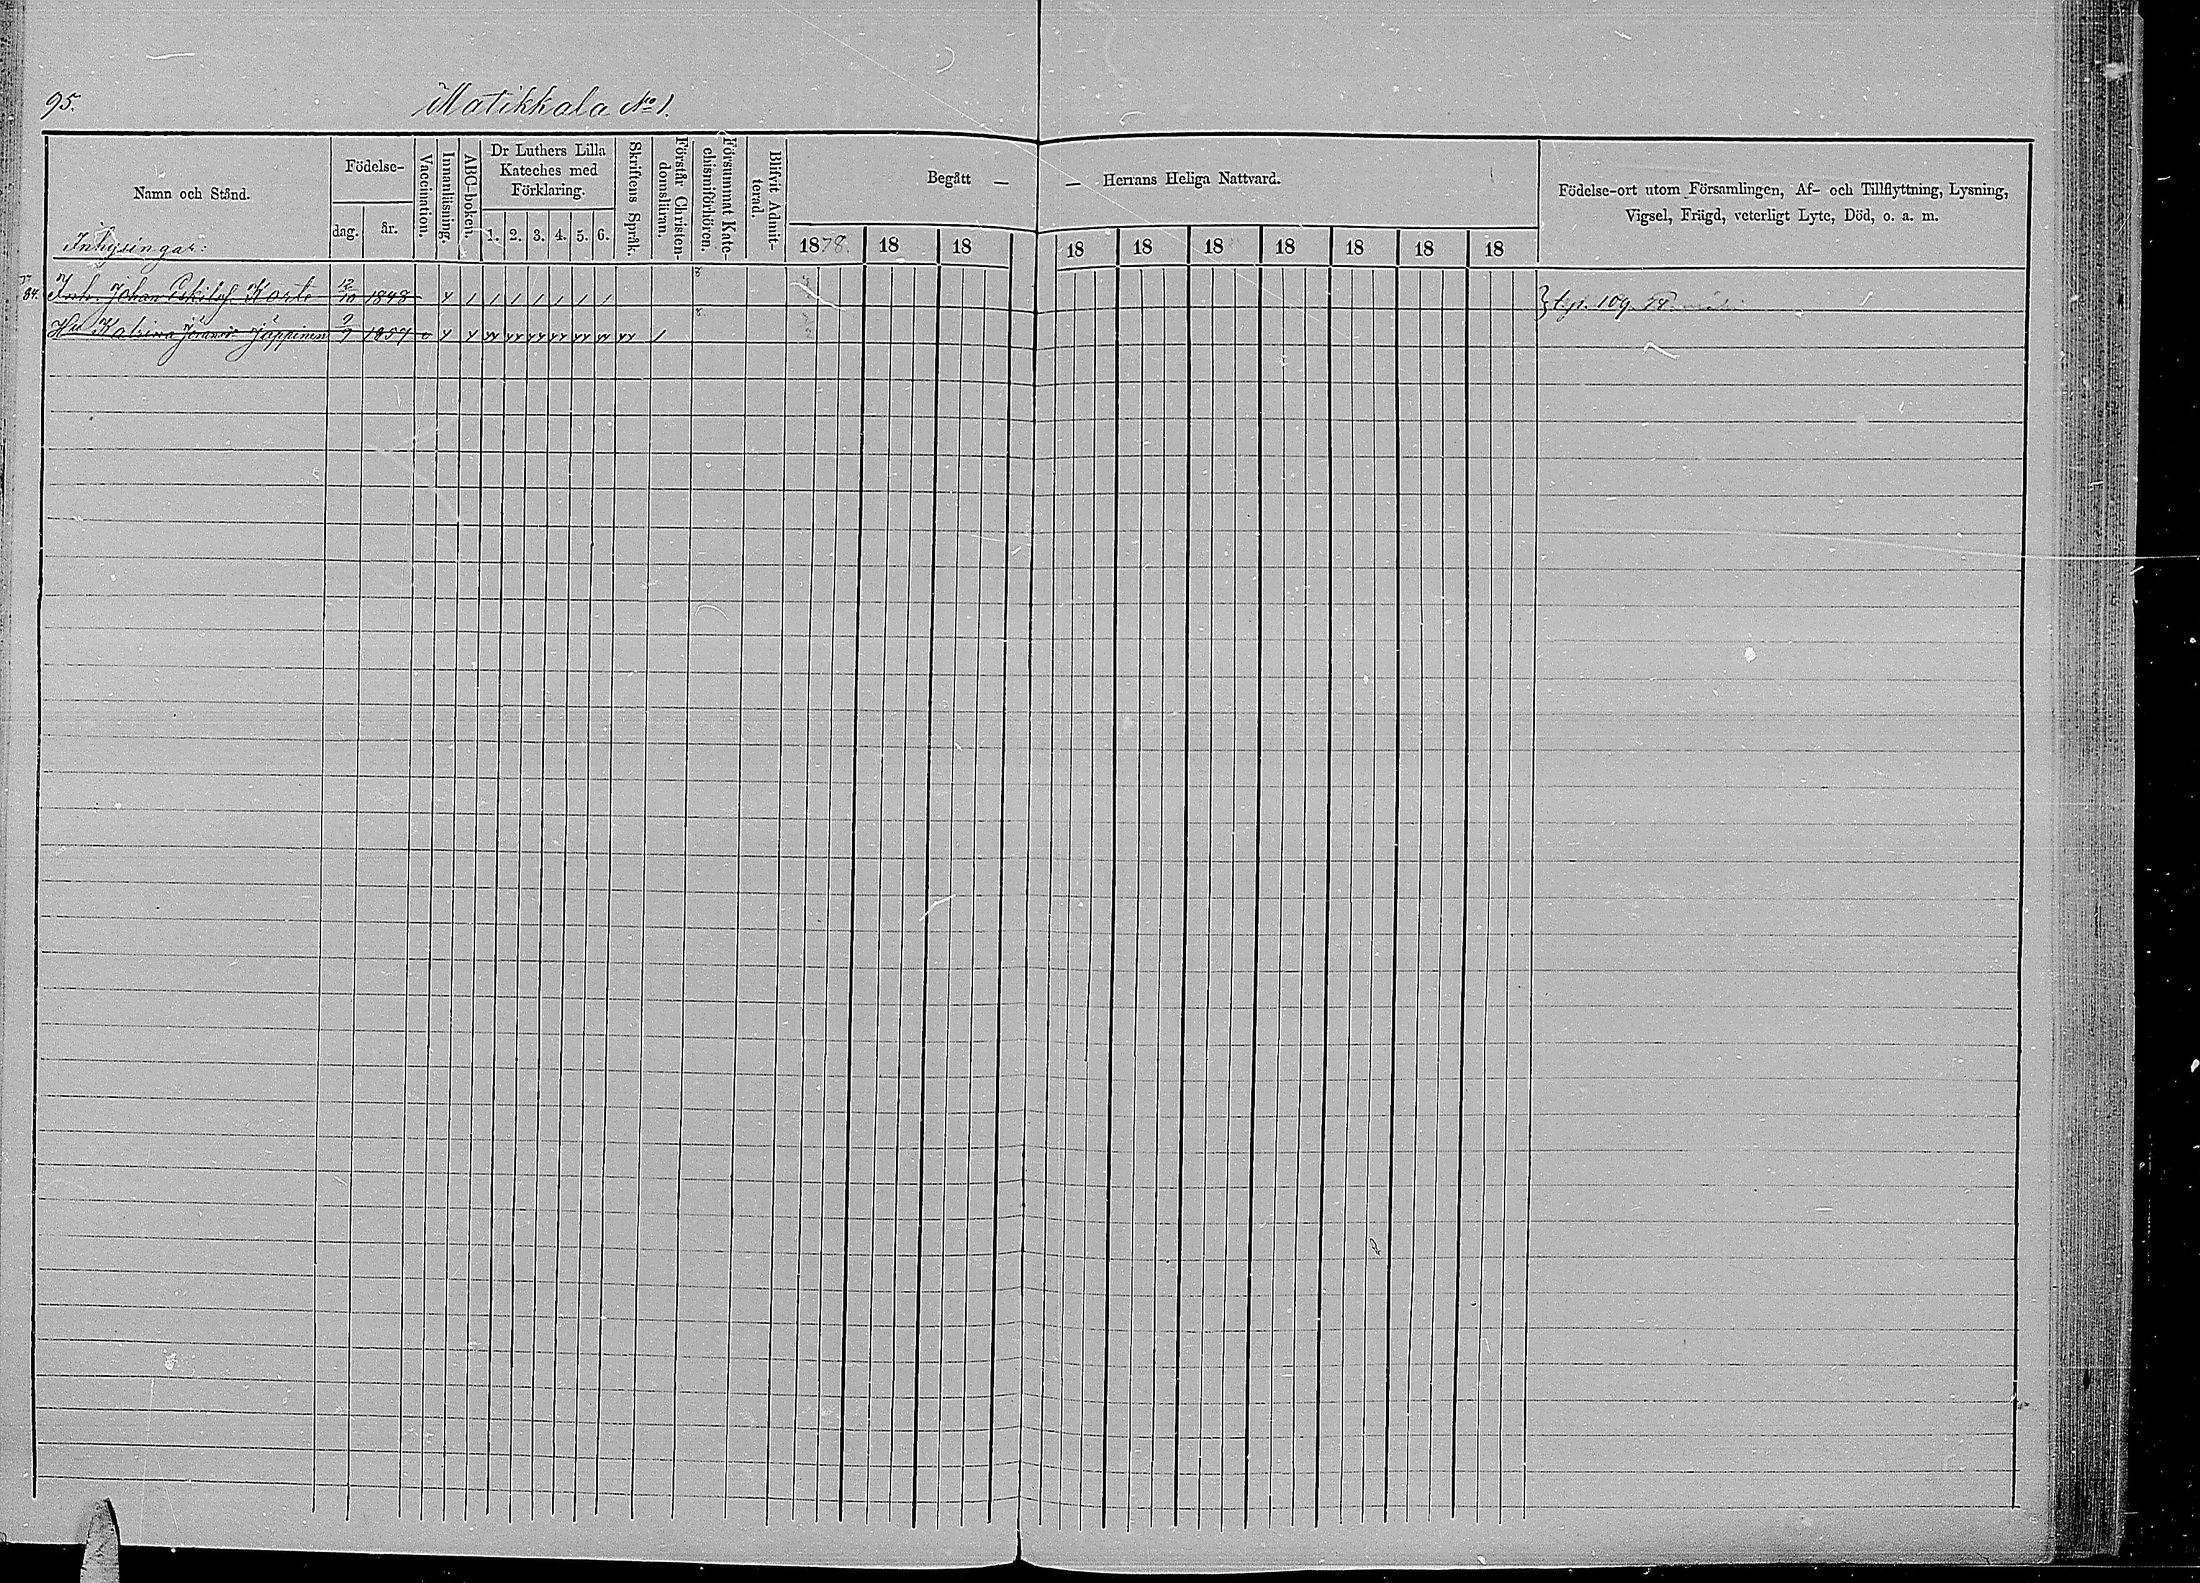 95. Matikkala No 1.
Namn och Stånd.
Födelse-
dag. år.
Vaccination.
Innanläsning.
ABC-boken.
Dr Luthers Lilla
Kateches med
Förklaring.
1. 2. 3. 4. 5. 6.
Skriftens Språk.
Förstår Christen-
domsläran.
Försummat Kate-
chismiförhören.
Blifvit Admit-
terad.
Begått —
— Herrans Heliga Nattvard.
1878. 18 18 18 18 18 18 18 18 18
Födelse-ort utom Församlingen, Af- och Tillflyttning, Lysning,
Vigsel, Frägd, veterligt Lyte, Död, o. a. m.
Inhysingar:
84. Inh. Johan Eskilsf. Korte 12/10 1848 t.p. 109.
Hu Katrina Jöransd. Jäppinen 9/9 1857